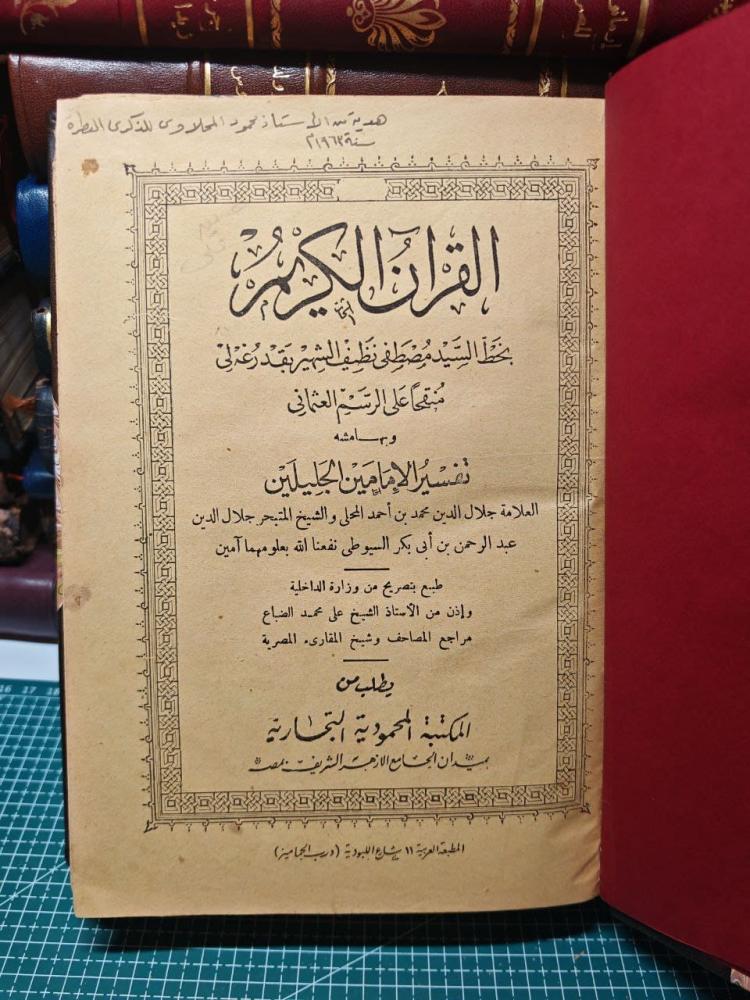 هدية من الأستاذ محمود المحلاوى للذكرى العطرة
سنة ١٩٦٣م
القرآن الكريم
بخط السيد مصطفى نظيف الشهير بقدرغه لي
منقحاً على الرسم العثماني
وبهامشه
تفسير الإمامين الجليلين
العلامة جلال الدين محمد بن أحمد المحلى والشيخ المتبحر جلال الدين
عبد الرحمن بن أبى بكر السيوطى نفعنا الله بعلومهما آمين
طبع بتصريح من وزارة الداخلية
وإذن من الأستاذ الشيخ على محمد الضباع
مراجع المصاحف وشيخ المقارىء المصرية
يطلب من
المكتبة المحمودية التجارية
بميدان الجامع الازهر الشريف بمصر
المطبعة العربية ١١ شارع اللبودية (درب الجماميز)